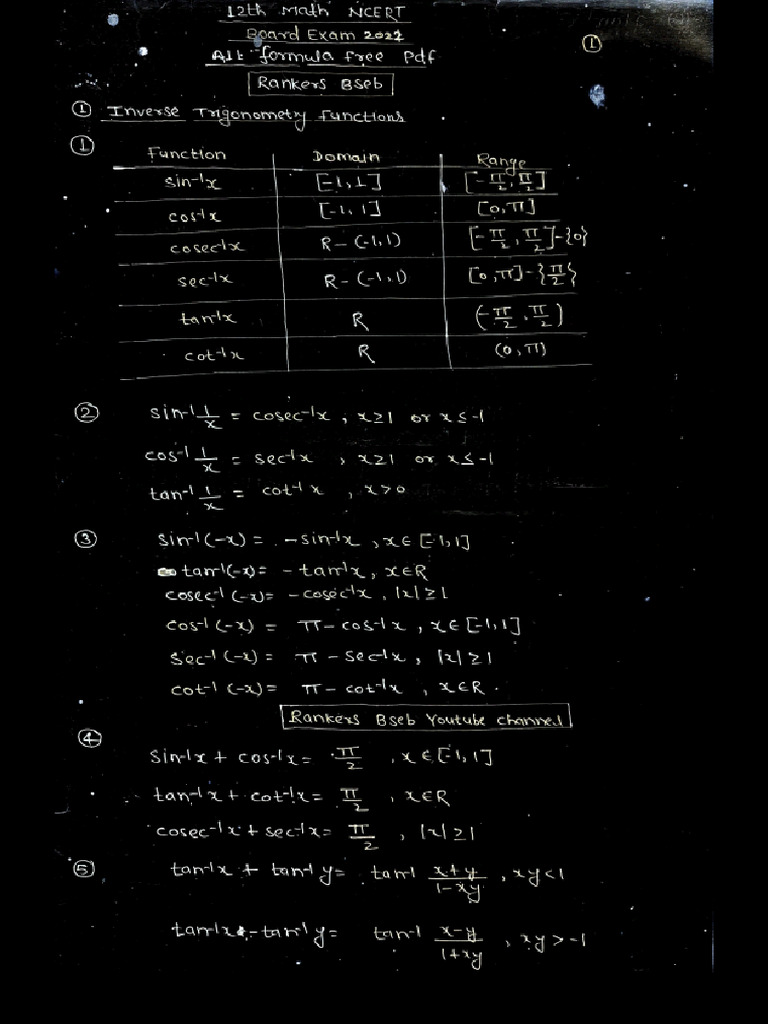 12th Math NCERT
Board Exam 2022
All formula free Pdf
①
Rankers Bseb
① Inverse Trigonometry Functions
①
Function Domain Range
sin⁻¹x [-1,1] [-π/2, π/2]
cos⁻¹x [-1,1] [0,π]
cosec⁻¹x R-(-1,1) [-π/2, π/2]-{0}
sec⁻¹x R-(-1,1) [0,π]-{π/2}
tan⁻¹x R (-π/2, π/2)
cot⁻¹x R (0,π)
② sin⁻¹ 1/x = cosec⁻¹x , x≥1 or x≤-1
cos⁻¹ 1/x = sec⁻¹x , x≥1 or x≤-1
tan⁻¹ 1/x = cot⁻¹x , x>0
③ sin⁻¹(-x) = -sin⁻¹x , x∈[-1,1]
tan⁻¹(-x) = -tan⁻¹x, x∈R
cosec⁻¹(-x) = -cosec⁻¹x , |x|≥1
cos⁻¹(-x) = π-cos⁻¹x , x∈[-1,1]
sec⁻¹(-x) = π-sec⁻¹x , |x|≥1
cot⁻¹(-x) = π-cot⁻¹x , x∈R.
Rankers Bseb Youtube channel
④
sin⁻¹x + cos⁻¹x = π/2 , x∈[-1,1]
tan⁻¹x + cot⁻¹x = π/2 , x∈R
cosec⁻¹x + sec⁻¹x = π/2 , |x|≥1
⑤ tan⁻¹x + tan⁻¹y = tan⁻¹ x+y/1-xy , xy<1
tan⁻¹x - tan⁻¹y = tan⁻¹ x-y/1+xy , xy>-1